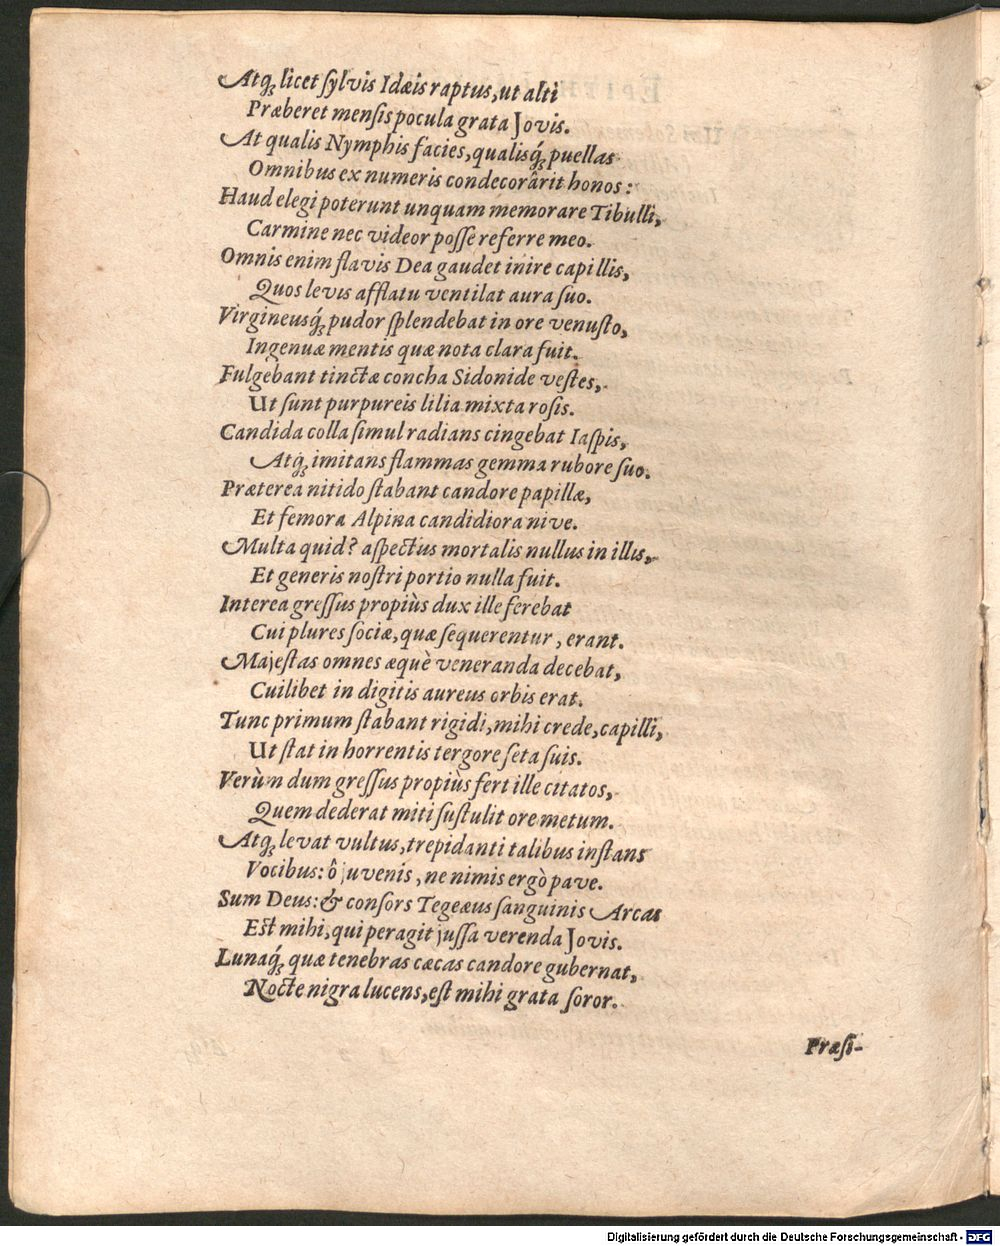 Atq́; licet ſylvis Idæis raptus, ut alti
Præberet menſis pocula grata Jovis.
At qualis Nymphis facies, qualisq́; puellas
Omnibus ex numeris condecorârit honos:
Haud elegi poterunt unquam memorare Tibulli,
Carmine nec videor poſſe referre meo.
Omnis enim flavis Dea gaudet inire capillis,
Quos levis afflatu ventilat aura ſuo.
Virgineusq́; pudor ſplendebat in ore venuſto,
Ingenuæ mentis quæ nota clara fuit.
Fulgebant tinctæ concha Sidonide veſtes,
Ut ſunt purpureis lilia mixta roſis.
Candida colla ſimul radians cingebat Iaſpis,
Atq́; imitans flammas gemma rubore ſuo.
Præterea nitido ſtabant candore papillæ,
Et femora Alpina candidiora nive.
Multa quid? aſpectus mortalis nullus in illis,
Et generis noſtri portio nulla fuit.
Interea greſſus propiùs dux ille ferebat
Cui plures ſociæ, quæ ſequerentur, erant.
Majeſtas omnes æquè veneranda decebat,
Cuilibet in digitis aureus orbis erat.
Tunc primum ſtabant rigidi, mihi crede, capilli,
Ut ſtat in horrentis tergore ſeta ſuis.
Verùm dum greſſus propiùs fert ille citatos,
Quem dederat miti ſuſtulit ore metum.
Atq́; levat vultus, trepidanti talibus inſtans
Vocibus: ô juvenis, ne nimis ergò pave.
Sum Deus: & conſors Tegeæus ſanguinis Arcas
Eſt mihi, qui peragit juſſa verenda Jovis.
Lunaq́; quæ tenebras cæcas candore gubernat,
Nocte nigra lucens, eſt mihi grata ſoror.
Præſi-
Digitalisierung gefördert durch die Deutsche Forschungsgemeinschaft - DFG